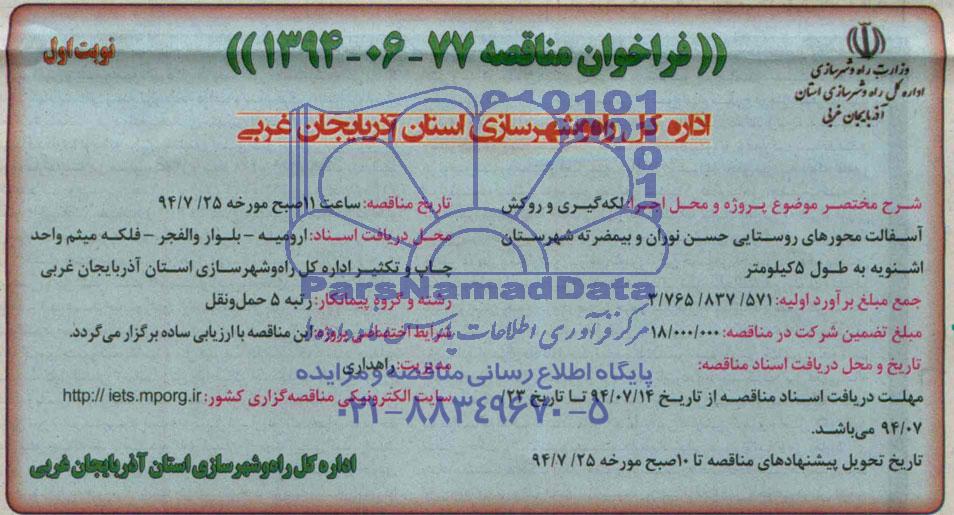 (( فراخوان مناقصه ۷۷ -۰۶ -۱۳۹۴ ))
نوبت اول
وزارت راه و شهرسازی
اداره کل راه و شهرسازی استان
آذربایجان غربی
اداره کل راه‌وشهرسازی استان آذربایجان غربی
شرح مختصر موضوع پروژه و محل اجرا: لکه‌گیری و روکش
آسفالت محورهای روستایی حسن نوران و بیمضرته شهرستان
اشنویه به طول ۵کیلومتر
جمع مبلغ برآورد اولیه: ۳/۷۶۵/ ۸۳۷/ ۵۷۱
مبلغ تضمین شرکت در مناقصه: ۱۸/۰۰۰/۰۰۰
تاریخ و محل دریافت اسناد مناقصه:
مهلت دریافت اسناد مناقصه از تاریخ ۹۴/۰۷/۱۴ تا تاریخ ۲۳/
۹۴/۰۷ می‌باشد.
تاریخ تحویل پیشنهادهای مناقصه تا ۱۰صبح مورخه ۲۵/ ۹۴/۷
تاریخ مناقصه: ساعت ۱۱صبح مورخه ۲۵/ ۹۴/۷
محل دریافت اسناد: ارومیه - بلوار والفجر - فلکه میثم واحد
چاپ و تکثیر اداره کل راه‌وشهرسازی استان آذربایجان غربی
رشته و گروه پیمانکار: رتبه ۵ حمل‌ونقل
شرایط اختصاصی پروژه: این مناقصه با ارزیابی ساده برگزار می‌گردد.
مدیریت: راهداری
سایت الکترونیکی مناقصه‌گزاری کشور: http:// iets.mporg.ir
اداره کل راه‌وشهرسازی استان آذربایجان غربی
ParsNamadData
مرکز فرآوری اطلاعات پارس نماد داده‌ها
پایگاه اطلاع رسانی مناقصه و مزایده
۰۲۱-۸۸۳۴۹۶۷۰-۵